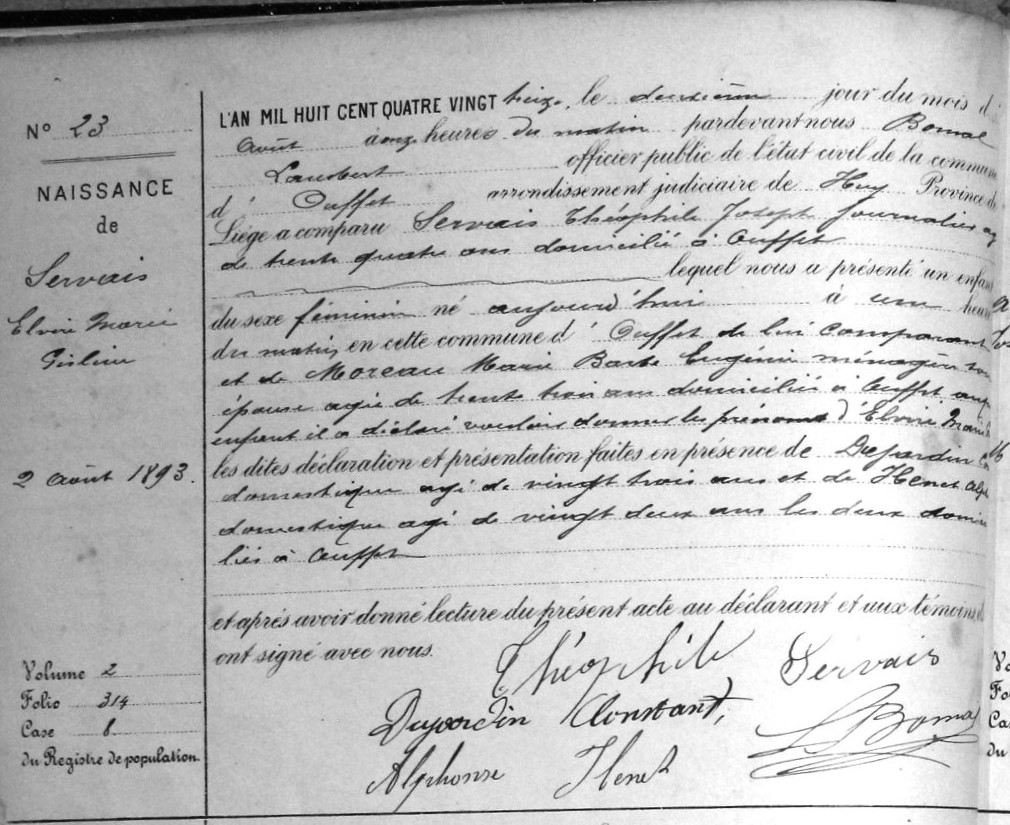 N° 23
NAISSANCE
de
Servais
Elvire Marie
Gisline
2 août 1893.
Volume 2
Folio 314
Case 8
du Registre de population
L'AN MIL HUIT CENT QUATRE VINGT treize, le deuxième jour du mois d'
août à onze heures du matin pardevant nous Bomal
Lambert officier public de l'état civil de la commune
d' Ouffet arrondissement judiciaire de Huy Province de
Liége a comparu Servais Théophile Joseph journalier agé
de trente quatre ans domicilié à Ouffet
lequel nous a présenté un enfant
du sexe féminin né aujourd'hui à une heure
du matin, en cette commune d' Ouffet de lui comparant
et de Moreau Marie Barbe Eugénie ménagère son
épouse agée de trente trois ans domiciliée à Ouffet, auquel
enfant il a déclaré vouloir donner les prénoms d'Elvire Marie
les dites déclaration et présentation faites en présence de Dujardin
domestique agé de vingt trois ans et de Henet Alph
domestique agé de vingt deux ans les deux domici
liés à Ouffet
et aprés avoir donné lecture du présent acte au déclarant et aux témoins,
ont signé avec nous.
Théophile Servais
Dujardin Constant,
L Bomal
Alphonse Henet
Vo
Fo
Ca
du